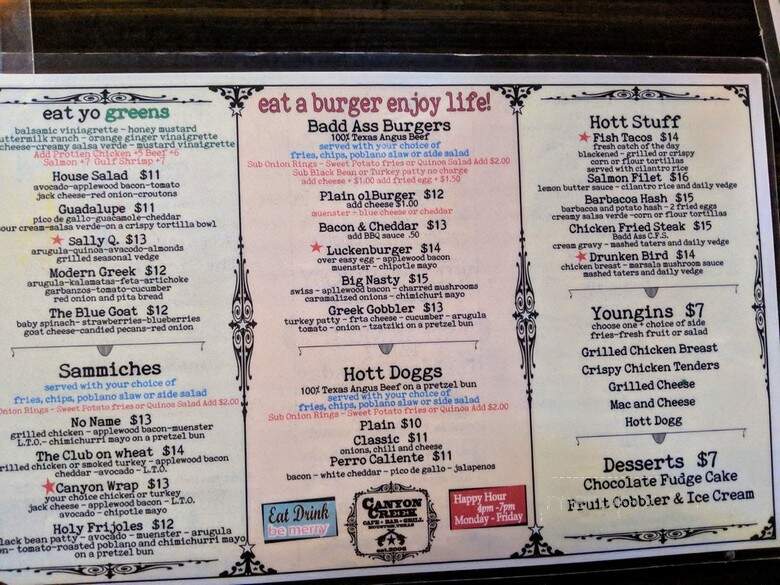 eat yo greens
balsamic viniagrette - honey mustard
ranch - orange ginger vinaigrette
cheese-creamy salsa verde - mustard vinaigrette
Add Protien Chicken +5 Beef +6
Salmon +7 Gulf Shrimp +7
House Salad $11
avocado-applewood bacon-tomato
jack cheese-red onion-croutons
Guadalupe $11
pico de gallo-guacamole-cheddar
cream-salsa verde-on a crispy tortilla bowl
Sally Q. $13
arugula-quinoa-avacado-almonds
grilled seasonal vedge
Modern Greek $12
arugula-kalamatas-feta-artichoke
garbanzos-tomato-cucumber
red onion and pita bread
The Blue Goat $12
baby spinach-strawberries-blueberries
goat cheese-candied pecans-red onion
Sammiches
served with your choice of
fries, chips, poblano slaw or side salad
Onion Rings - Sweet Potato fries or Quinoa Salad Add $2.00
No Name $13
grilled chicken - applewood bacon-muenster
L.T.O.- chimichurri mayo on a pretzel bun
The Club on wheat $14
grilled chicken or smoked turkey - applewood bacon
cheddar -avocado - L.T.O.
Canyon Wrap $13
your choice chicken or turkey
jack cheese - applewood bacon - L.T.O.
avocado - chipotle mayo
Holy Frijoles $12
bean patty - avocado - muenster - arugula
tomato-roasted poblano and chimichurri mayo
on a pretzel bun
eat a burger enjoy life!
Badd Ass Burgers
100% Texas Angus Beef
served with your choice of
fries, chips, poblano slaw or side salad
Sub Onion Rings - Sweet Potato fries or Quinoa Salad Add $2.00
Sub Black Bean or Turkey patty no charge
add cheese + $1.00 add fried egg + $1.50
Plain olBurger $12
add cheese $1.00
muenster - blue cheese or cheddar
Bacon & Cheddar $13
add BBQ sauce .50
Luckenburger $14
over easy egg - applewood bacon
muenster - chipotle mayo
Big Nasty $15
swiss - apllewood bacon - charred mushrooms
caramalized onions - chimichuri mayo
Greek Gobbler $13
turkey patty - frta cheese - cucumber - arugula
tomato - onion - tzatziki on a pretzel bun
Hott Doggs
100% Texas Angus Beef on a pretzel bun
served with your choice of
fries, chips, poblano slaw or side salad
Sub Onion Rings - Sweet Potato fries or Quinoa Add $2.00
Plain $10
Classic $11
onions, chili and cheese
Perro Caliente $11
bacon - white cheddar - pico de gallo - jalapenos
Eat Drink
be merry
CANYON
CREEK
CAFE - BAR - GRILL
HOUSTON, TEXAS
Happy Hour
4pm -7pm
Monday - Friday
Hott Stuff
Fish Tacos $14
fresh catch of the day
blackened - grilled or crispy
corn or flour tortillas
served with cilantro rice
Salmon Filet $16
lemon butter sauce - cilantro rice and daily vedge
Barbacoa Hash $15
barbacoa and potato hash - 2 fried eggs
creamy salsa verde -corn or flour tortillas
Chicken Fried Steak $15
Badd Ass C.F.S.
cream gravy - mashed taters and daily vedge
Drunken Bird $14
chicken breast - marsala mushroom sauce
mashed taters and daily vedge
Youngins $7
choose one + choice of side
fries-fresh fruit or salad
Grilled Chicken Breast
Crispy Chicken Tenders
Grilled Cheese
Mac and Cheese
Hott Dogg
Desserts $7
Chocolate Fudge Cake
Fruit Cobbler & Ice Cream